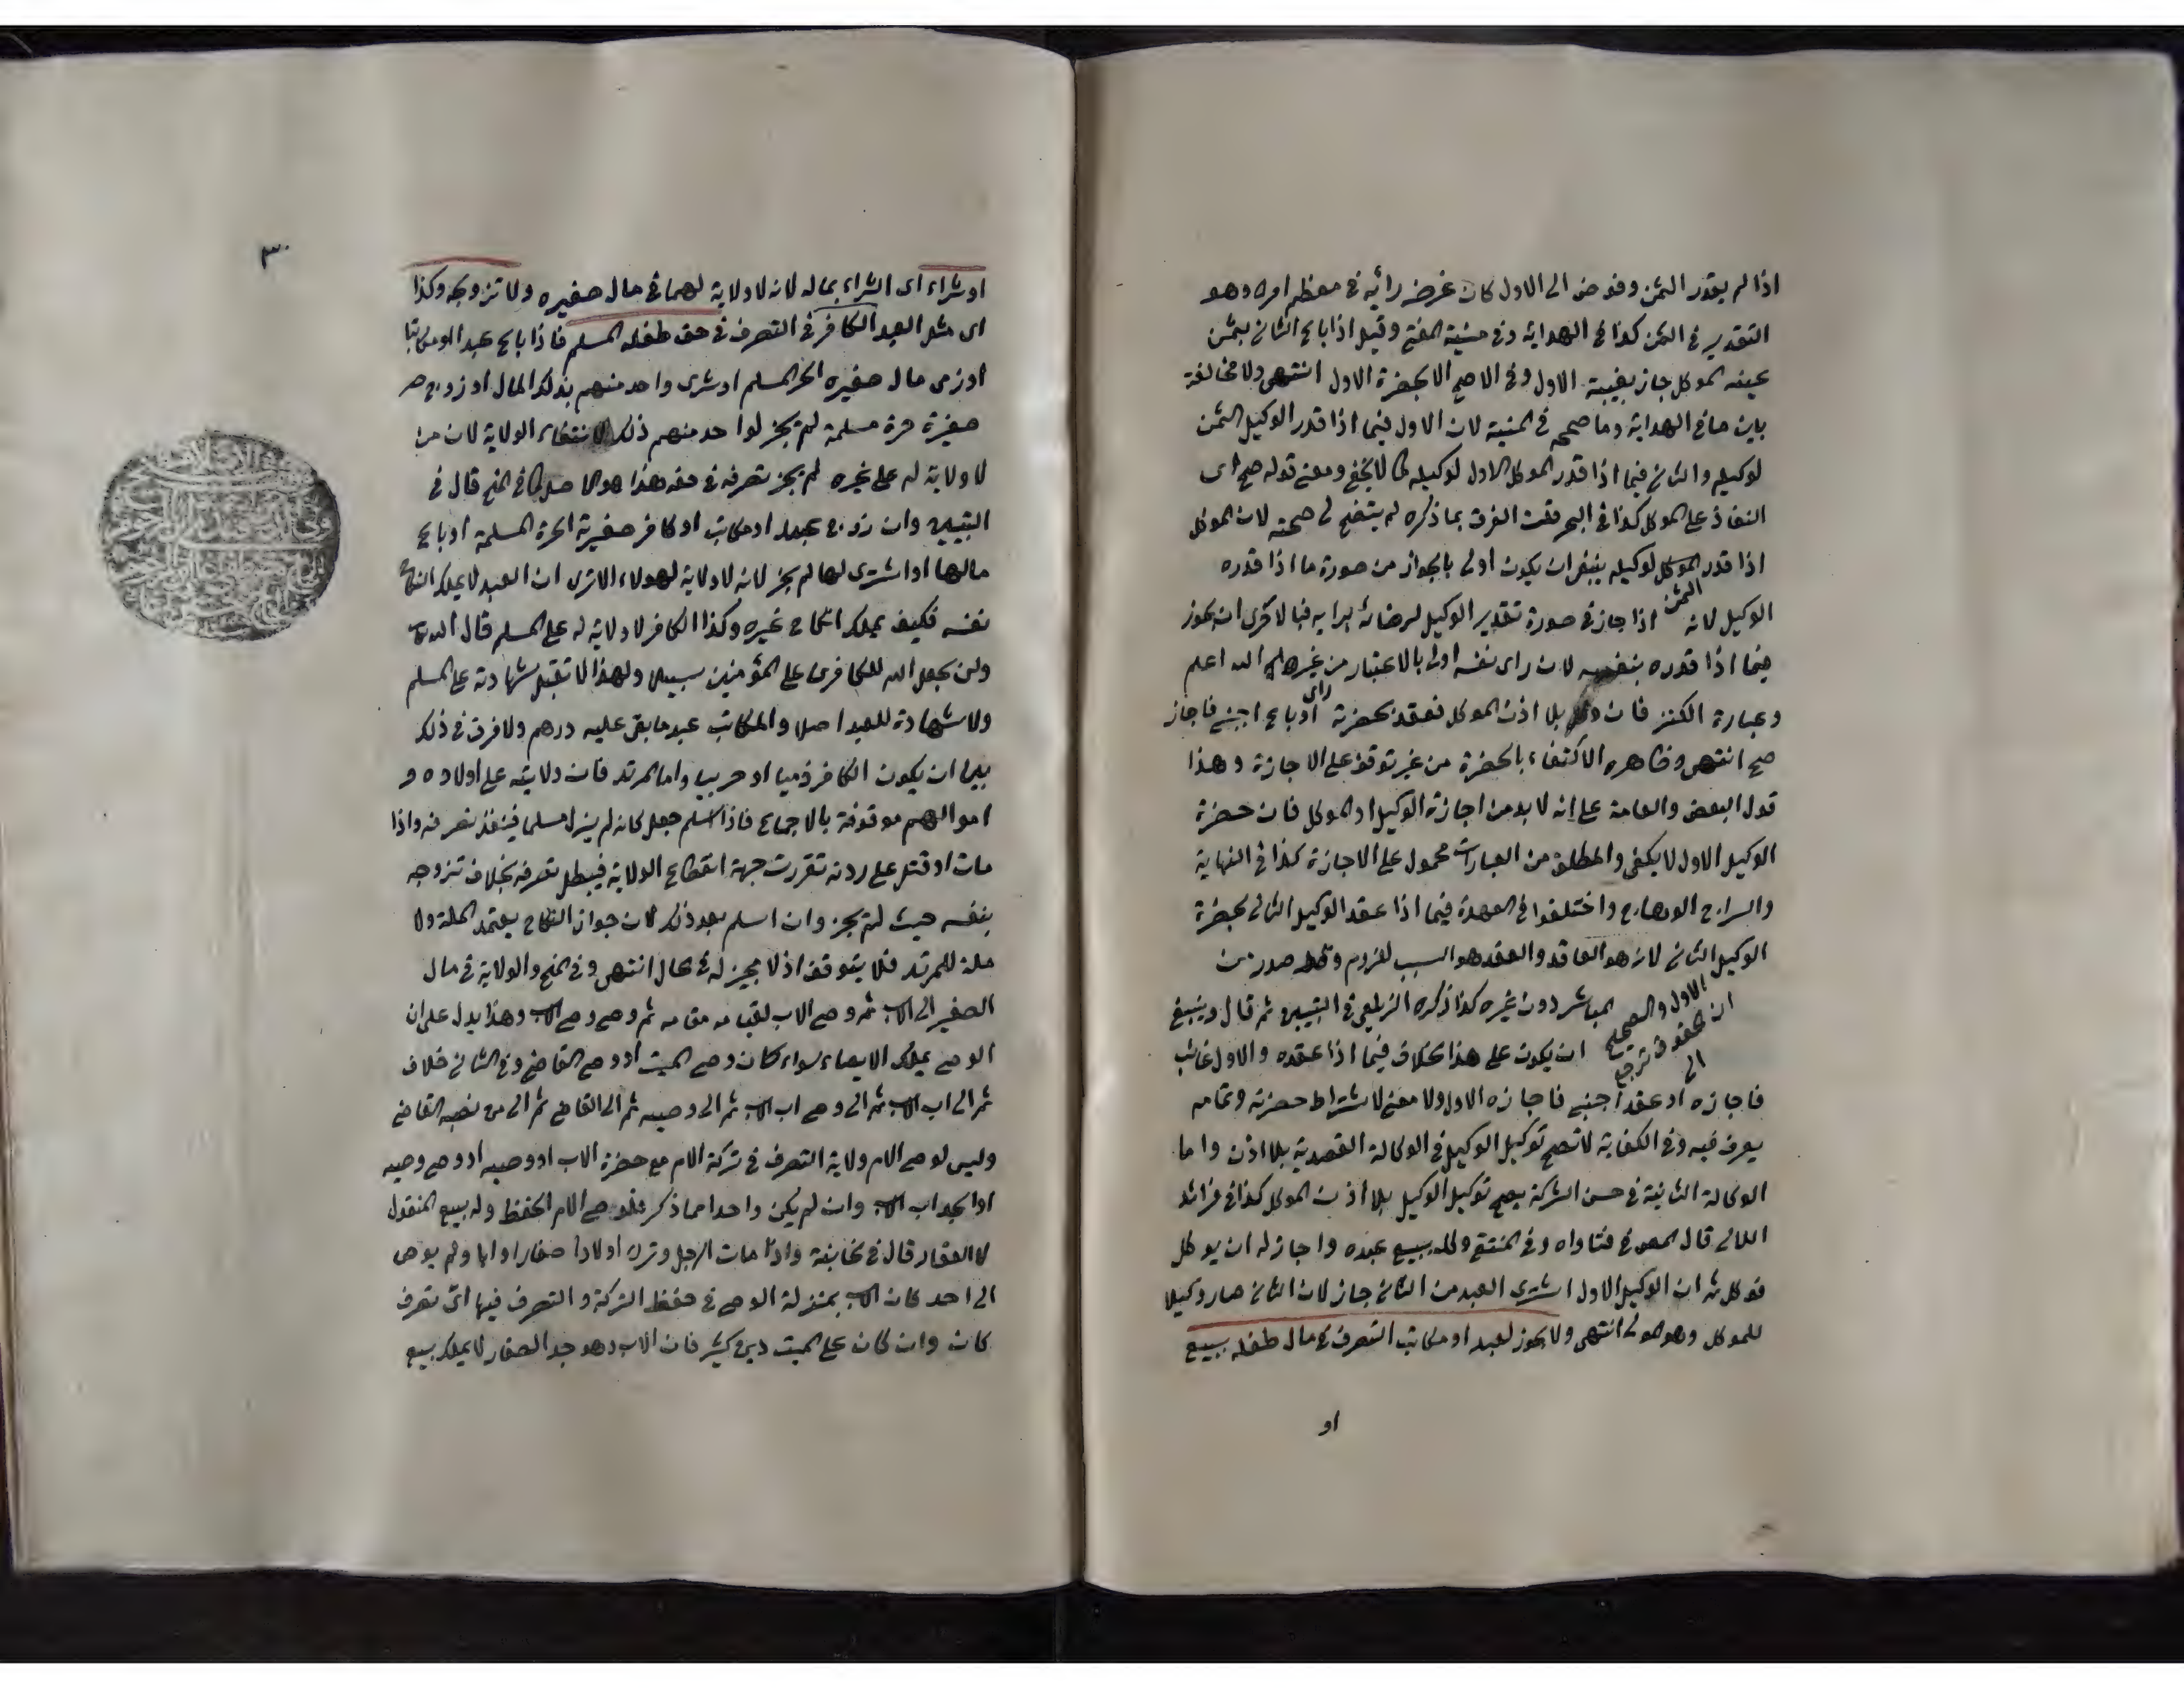 اذا لم يقدر الثمن وفوض الى الاول كان غرضه رأيه في معظم امره وهو
التقدير في الثمن كذا في الهداية وفي منية المفتي وقيل اذا باع الثاني بثمن
عينه الموكل جاز بغيبة الاول وفي الاصح الا بحضرة الاول انتهى ولا مخالفة
بين ما في الهداية وما صححه في المنية لان الاول فيما اذا قدر الوكيل الثمن
لوكيله والثاني فيما اذا قدر الموكل الاول لوكيله كما لا يخفى ومعنى قوله صح اى
النفاذ على الموكل كذا في البحر فقلت الفرق بما ذكره لم يتضح لى صحته لان الموكل
اذا قدر الموكل لوكيله ينبغى ان يكون اولى بالجواز من صورة ما اذا قدره
الوكيل لانه الثمن اذا جاز في صورة تقدير الوكيل لرضائه برايه فبالاحرى ان يجوز
فيما اذا قدره بنفسه لان راى نفسه اولى بالاعتبار من غيره والله اعلم
وعبارة الكنز فان وكل بلا اذن الموكل فعقد بحضرته او باع اجنبى فاجاز
صح انتهى وظاهره الاكتفاء بالحضرة من غير توقف على الاجازة وهذا
قول البعض والعامة على انه لا بد من اجازة الوكيل او الموكل فان حضرة
الوكيل الاول لا يكفى والمطلق من العبارات محمول على الاجازة كذا في النهاية
والسراج الوهاج واختلفوا في العهدة فيما اذا عقد الوكيل الثانى بحضرة
الوكيل الثانى لانه هو العاقد والعقد هو السبب لفروم وقد صدر من
الاول والصحيح ان الحقوق ترجع الى المباشر دون غيره كذا ذكره الزيلعى في التبيين ثم قال وينبغى
ان يكون على هذا الخلاف فيما اذا عقده والاول غائب
فاجازه او عقد اجنبى فاجازه الاول ولا معنى لاشتراط حضرته وتمامه
يعرف فيه وفى الكفاية لا تصح توكيل الوكيل في الوكالة القصدية بلا اذن واما
الوكالة الثانية في ضمن الشركة يصح توكيل الوكيل بلا اذن الموكل كذا في فرائد
اللالى قال المصـ في فتاواه وفى المنتقى وكله ببيع عبده واجاز له ان يوكل
فوكل ثم ان الوكيل الاول اشترى العبد من الثانى جاز لان الثانى صار وكيلا
للموكل وهو المولى انتهى ولا يجوز لعبد او مكاتب التصرف في مال طفله ببيع
او
٣٠
او شراء اى الشراء بماله لانه لا ولاية لهما في مال صغيره ولا تزويجه وكذا
اى مثل العبد الكافر في التصرف في حق طفله المسلم فاذا باع عبد او مكاتب
او ذمى مال صغيره الحر المسلم او شرى واحد منهم بذلك المال او زوج
صغيرة حرة مسلمة لم يجز لواحد منهم ذلك لانتفاء الولاية لان من
لا ولاية له على غيره لم يجز تصرفه في حقه هذا هو الاصل كما في المنح قال في
التبيين وان زوج عبد او مكاتب او كافر صغيرته الحرة المسلمة او باع
مالها او اشترى لها لم يجز لانه لا ولاية لهولاء الا ترى ان العبد لا يملك انكاح
نفسه فكيف يملك انكاح غيره وكذا الكافر لا ولاية له على المسلم قال الله تعالى
ولن يجعل الله للكافرين على المؤمنين سبيلا ولهذا لا تقبل شهادته على المسلم
ولا شهادة للعبد اصلا والمكاتب عبد ما بقى عليه درهم ولا فرق في ذلك
بين ان يكون الكافر ذميا او حربيا واما المرتد فان ولايته على اولاده و
اموالهم موقوفة بالاجماع فاذا اسلم جعل كانه لم يزل مسلما فينفذ تصرفه واذا
مات او قتل على ردته تقررت جهة انقطاع الولاية فيبطل تصرفه بخلاف تزوجه
بنفسه حيث لم يجز وان اسلم بعد ذلك لان جواز النكاح يعتمد الملة ولا
ملة للمرتد فلا يتوقف اذ لا مجيز له في الحال انتهى وفى المنح والولاية في مال
الصغير الى الاب ثم وصى الاب لقيامه مقامه ثم وصى وصى الاب وهذا يدل على ان
الوصى يملك الايصاء سواء كان وصى الميت او وصى القاضى وفى الثانى خلاف
ثم الى اب الاب ثم الى وصى اب الاب ثم الى وصيه ثم الى القاضى ثم الى من نصبه القاضى
وليس لوصى الام ولاية التصرف في تركة الام مع حضرة الاب او وصيه او وصى وصيه
او الجد اب الاب وان لم يكن واحد مما ذكر فلوصى الام الحفظ وله بيع المنقول
لا العقار قال في الخانية واذا مات الرجل وترك اولادا صغارا وابا ولم يوص
الى احد كان الاب بمنزلة الوصى في حفظ التركة والتصرف فيها اى تصرف
كان وان كان على الميت دين كثير فان الاب وهو جد الصغار لا يملك بيع